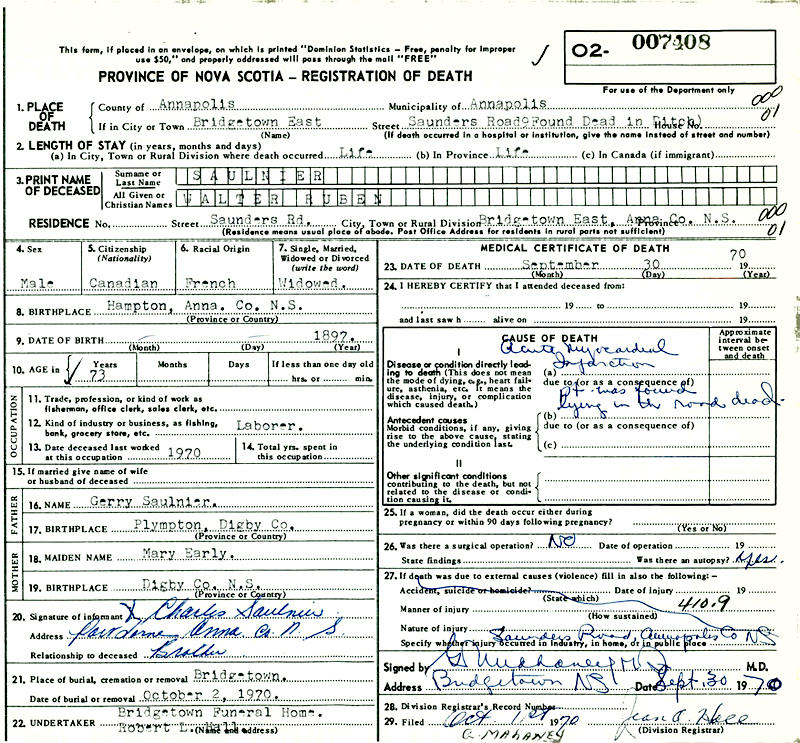 This form, if placed in an envelope, on which is printed "Dominion Statistics – Free, penalty for improper
use $50," and properly addressed will pass through the mail "FREE"
02- 007408
PROVINCE OF NOVA SCOTIA – REGISTRATION OF DEATH
For use of the Department only
1. PLACE OF DEATH
County of Annapolis Municipality of Annapolis 000
If in City or Town Bridgetown East Street Saunders Road (Found Dead in Ditch) House No. 01
(Name) (If death occurred in a hospital or institution, give the name instead of street and number)
2. LENGTH OF STAY (in years, months and days)
(a) In City, Town or Rural Division where death occurred Life (b) In Province Life (c) In Canada (if immigrant)
3. PRINT NAME OF DECEASED
Surname or Last Name SAULNIER
All Given or Christian Names WALTER RUBEN
RESIDENCE No. Street Saunders Rd. City, Town or Rural Division Bridgetown East, Anna. Co. N.S. Province 000
(Residence means usual place of abode. Post Office Address for residents in rural parts not sufficient) 01
4. Sex
Male
5. Citizenship
(Nationality)
Canadian
6. Racial Origin
French
7. Single, Married,
Widowed or Divorced
(write the word)
Widowed.
8. BIRTHPLACE Hampton, Anna. Co. N.S.
(Province or Country)
9. DATE OF BIRTH 1897.
(Month) (Day) (Year)
10. AGE in Years Months Days If less than one day old
73 hrs. or min.
OCCUPATION
11. Trade, profession, or kind of work as
fisherman, office clerk, sales clerk, etc.
12. Kind of industry or business, as fishing,
bank, grocery store, etc. Laborer.
13. Date deceased last worked
at this occupation 1970
14. Total yrs. spent in
this occupation
15. If married give name of wife
or husband of deceased
FATHER
16. NAME Gerry Saulnier.
17. BIRTHPLACE Plympton, Digby Co.
(Province or Country)
MOTHER
18. MAIDEN NAME Mary Early.
19. BIRTHPLACE Digby Co. N.S.
(Province or Country)
20. Signature of informant X Charles Saulnier
Address Anna Co N S
Relationship to deceased Brother
21. Place of burial, cremation or removal Bridgetown.
Date of burial or removal October 2, 1970.
22. UNDERTAKER Bridgetown Funeral Home.
Robert L.
(Name and address)
MEDICAL CERTIFICATE OF DEATH
23. DATE OF DEATH September 30 19 70
(Month) (Day) (Year)
24. I HEREBY CERTIFY that I attended deceased from:
19 to 19
and last saw h alive on 19
CAUSE OF DEATH
Approximate interval between onset and death
I
Disease or condition directly leading to death (This does not mean the mode of dying, e.g., heart failure, asthenia, etc. It means the disease, injury, or complication which caused death.)
(a) Acute Myocardial Infarction
due to (or as a consequence of)
Pt was found
lying in the road dead.
Antecedent causes
Morbid conditions, if any, giving rise to the above cause, stating the underlying condition last.
(b)
due to (or as a consequence of)
(c)
II
Other significant conditions
contributing to the death, but not related to the disease or condition causing it.
25. If a woman, did the death occur either during
pregnancy or within 90 days following pregnancy?
(Yes or No)
26. Was there a surgical operation? NO Date of operation 19
State findings Was there an autopsy? Yes.
27. If death was due to external causes (violence) fill in also the following:–
Accident, suicide or homicide? Date of injury 19
(State which) 410.9
Manner of injury
(How sustained)
Nature of injury
Saunders Road, Annapolis Co NS
Specify whether injury occurred in industry, in home, or in public place
Signed by M.D.
Address Bridgetown NS Date Sept. 30 1970
28. Division Registrar's Record Number
29. Filed Oct 1st 1970 Jean A.
G. MAHANEY (Division Registrar)